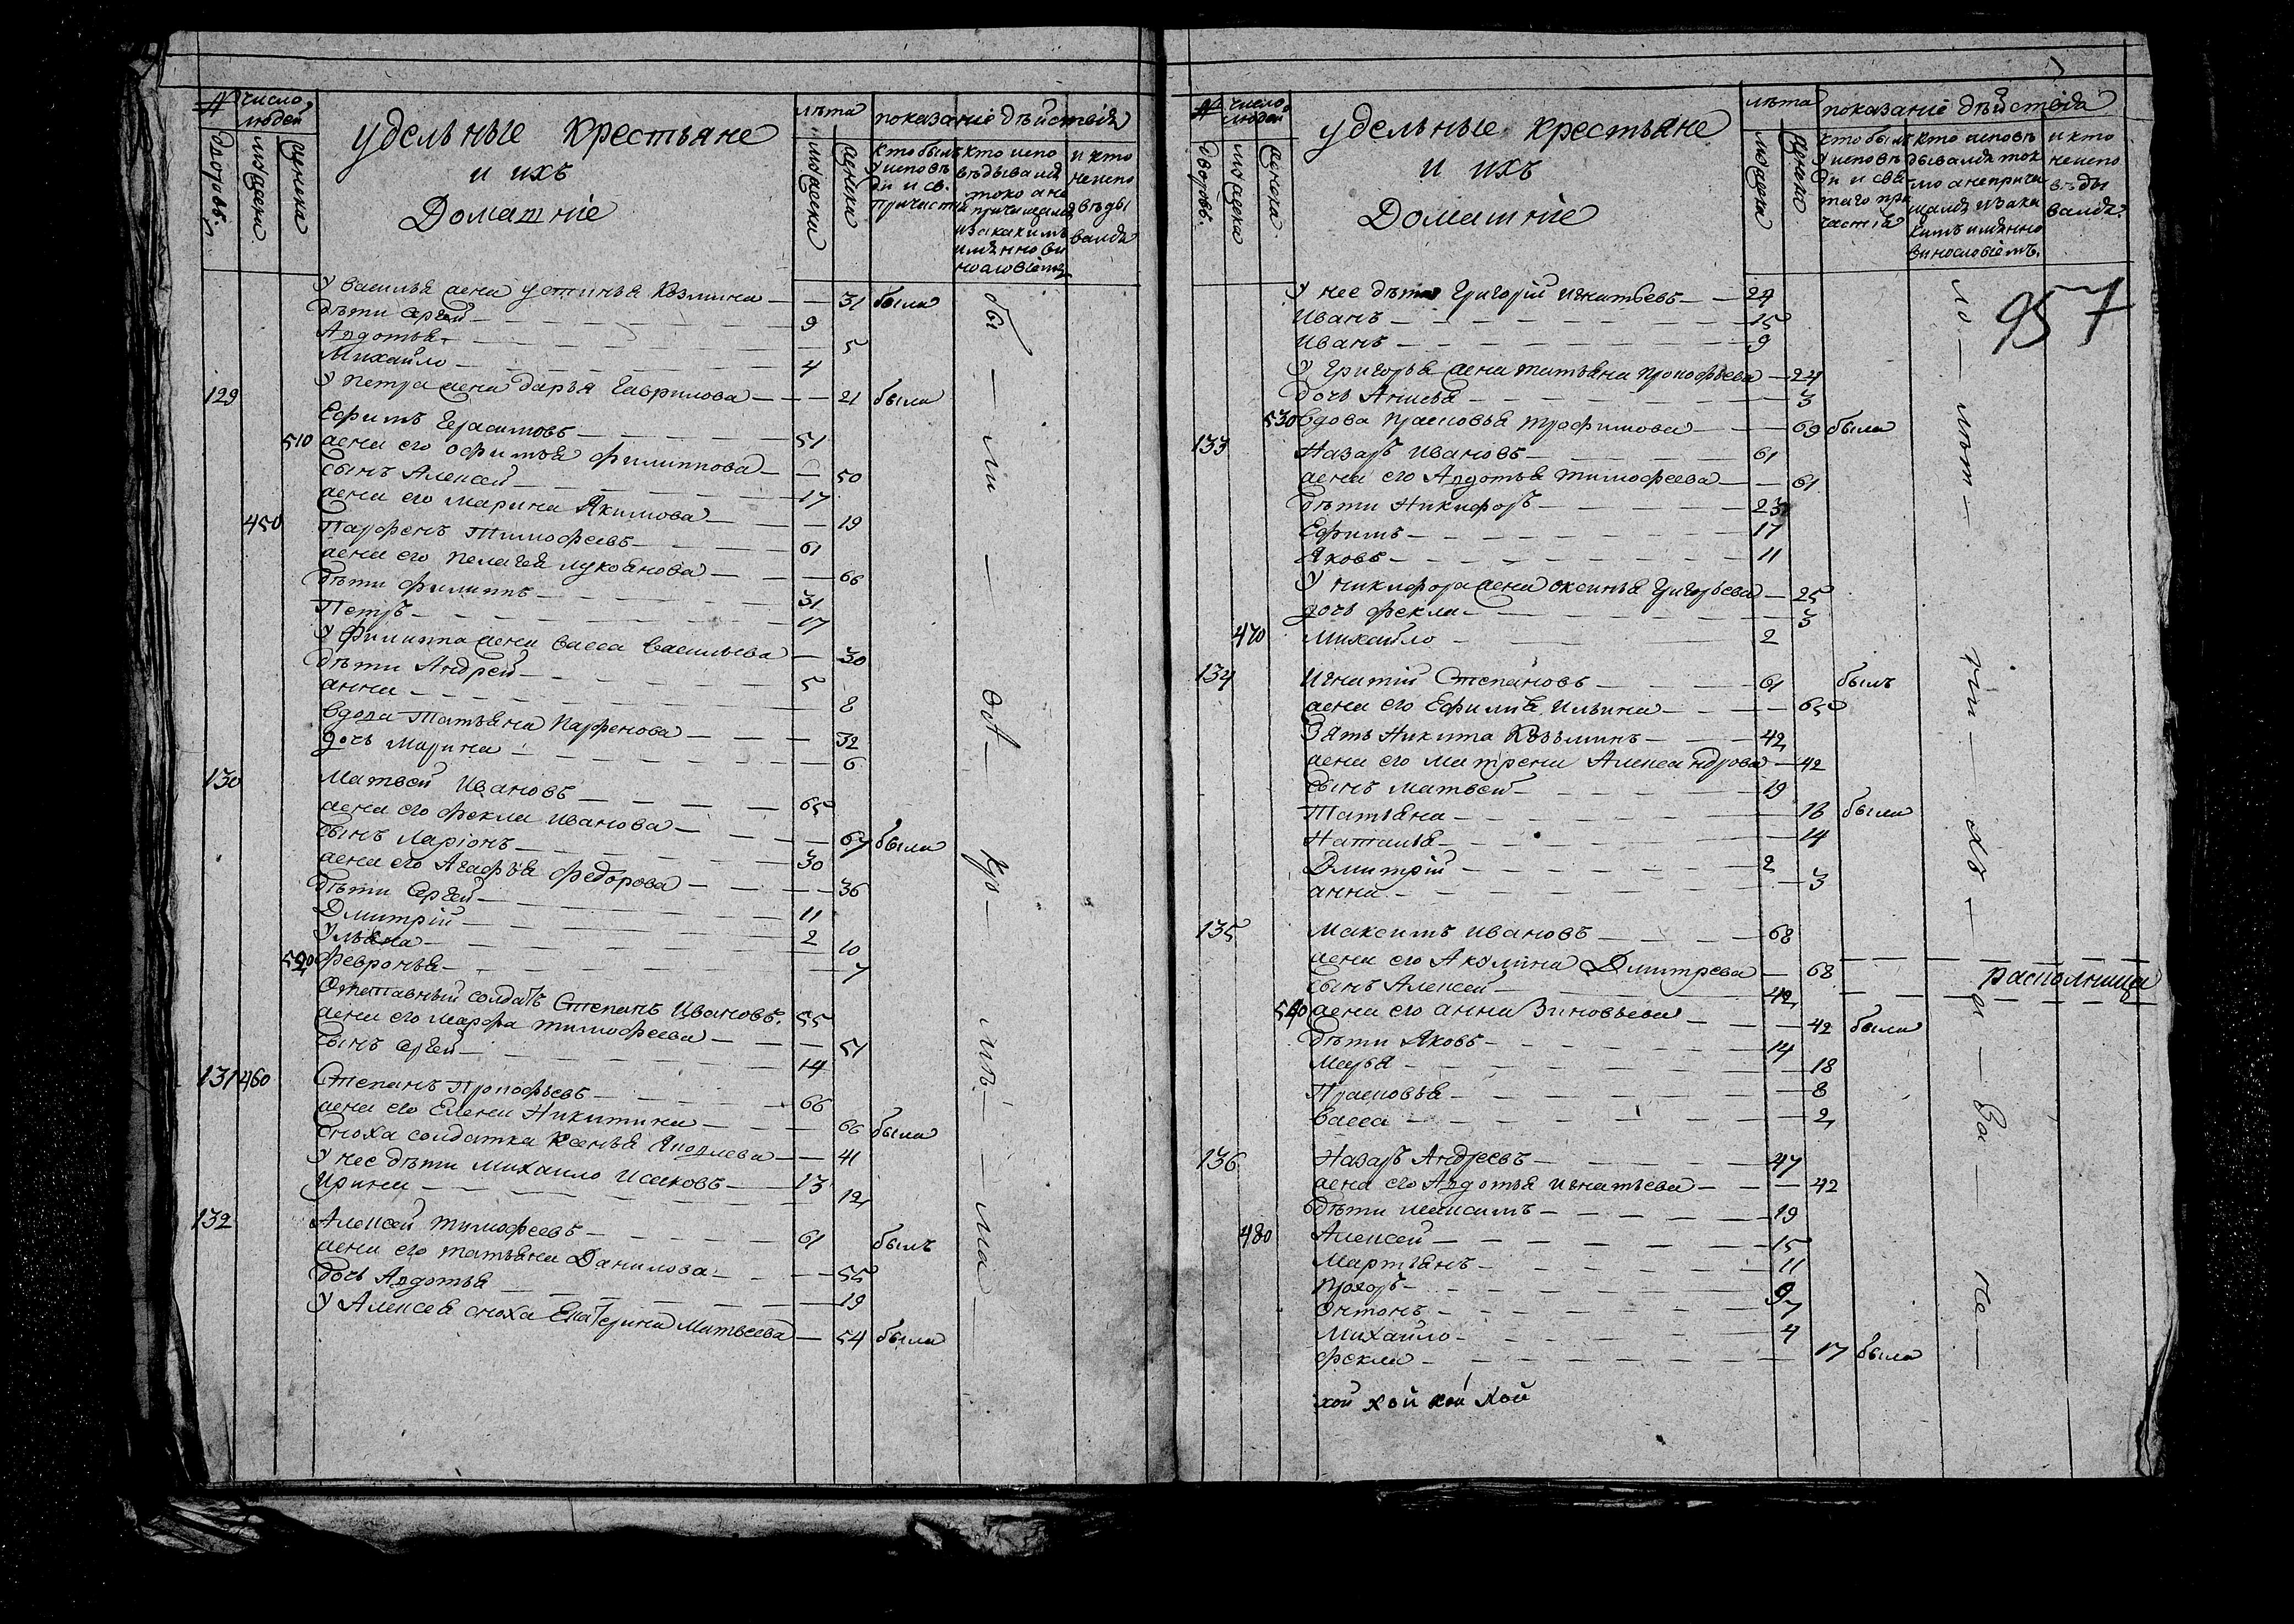 № число людей
дворовъ
мужеска
женска
удельные крестьяне
и ихъ
Домашніе
лѣта
мужеска
женска
показаніе дѣйствія
кто былъ у исповѣди и св. причастія
кто исповѣдывался токо а не причащался и за какимъ имянно винословіемъ
и кто не исповѣдывался
У василья жена устинья Козмина — 31 была
дѣти Сергей — 9
Авдотья — 5
Михайло — 4
У петра жена дарья Гаврилова — 21 была
129 Ефимъ Герасимовъ — 51
510 жена его офимья филиппова — 50
сынъ Алексей — 17
жена его марина Якимова — 19
450 Парфенъ Тимофеевъ — 61
жена его пелагея лукоянова — 66
дѣти филиппъ — 31
Петръ — 17
У филиппа жена васса васильева — 30
дѣти Андрей — 5
анна — 8
вдова Татьяна парфенова — 32
дочь марина — 6
130 Матвей Ивановъ — 65
жена его фекла иванова — 67 была
сынъ ларіонъ — 30
жена его Агафья федорова — 36
дѣти Сергей — 11
Дмитрій — 2
Ульяна — 10
520 Февронья — 7
Отставный солдатъ Степанъ Ивановъ 55
жена его марфа тимофеева — 51
сынъ Сергей — 14
131 460 Степанъ Прокофьевъ — 66
жена его Елена Никитина — 66 была
Сноха солдатка Ксенья Яковлева — 41
У нее дѣти михайло Исаковъ — 13
Ирина — 12
132 Алексей тимофеевъ — 61 былъ
жена его татьяна Данилова — 55
дочь Авдотья — 19
У Алексея сноха Екатерина Матвеева — 54 была
№ число людей
дворовъ
мужеска
женска
удельные крестьяне
и ихъ
Домашніе
лѣта
мужеска
женска
показаніе дѣйствія
кто былъ у исповѣди и святаго причастія
кто исповѣдывался токмо а не причащался и за какимъ имянно винословіемъ.
и кто не исповѣдывался.
957
У нее дѣти Григорій игнатьевъ — 24
Иванъ — 15
Иванъ — 9
У Григорья жена татьяна прокофьева — 24
дочь Анисья — 3
530 вдова прасковья трофимова — 69 была
133 Назаръ ивановъ — 61
жена его Авдотья тимофеева — 61
дѣти Никифоръ — 23
Ефимъ — 17
Яковъ — 11
У никифора жена оксинья григорьева — 25
дочь фекла — 3
470 михайло — 2
134 Игнатій Степановъ — 61 былъ
жена его Ефимія ильина — 65
Зять Никита Козьминъ — 42
жена его матрена Александрова — 42
сынъ матвей — 19
Татьяна — 16 была
Наталья — 14
Дмитрій — 2
анна — 3
135 Максимъ ивановъ — 68
жена его Акулина Дмитрева — 68
сынъ Алексей — 42
540 жена его анна Зиновьева — 42 была
дѣти Яковъ — 14
марья — 18
Прасковья — 8
васса — 2
136 Назаръ Андреевъ — 47
жена его Авдотья игнатьева — 42
дѣти максимъ — 19
480 Алексей — 15
Мартьянъ — 11
прохоръ — 9
Онтонъ — 7
михайло — 4
фекла — 17 была
хой хой хой хой